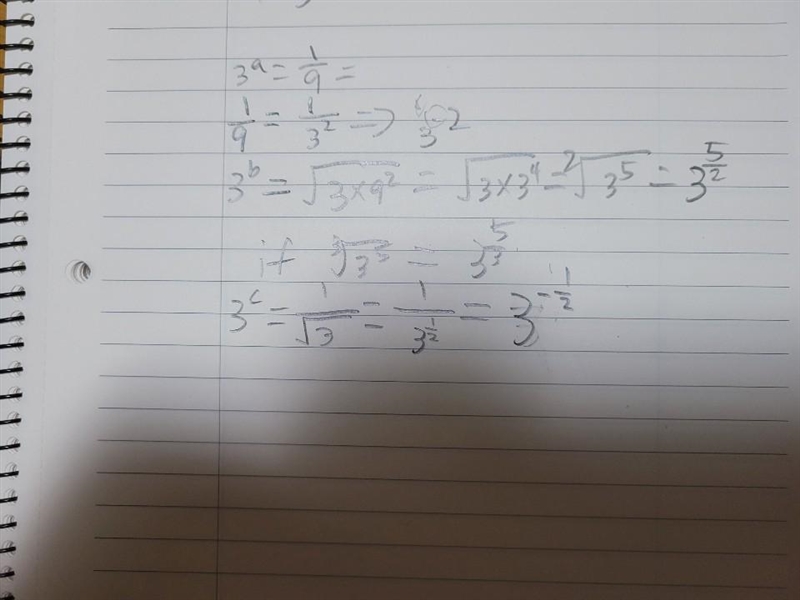 3^a = 1/9 =
1/9 = 1/3² => 3^-2
3^b = √(3×9²) = √(3×3⁴) = ²√(3⁵) = 3^(5/2)
if ³√(3⁵) = 3^(5/3)
3^c = 1/√3 = 1/3^(1/2) = 3^(-1/2)